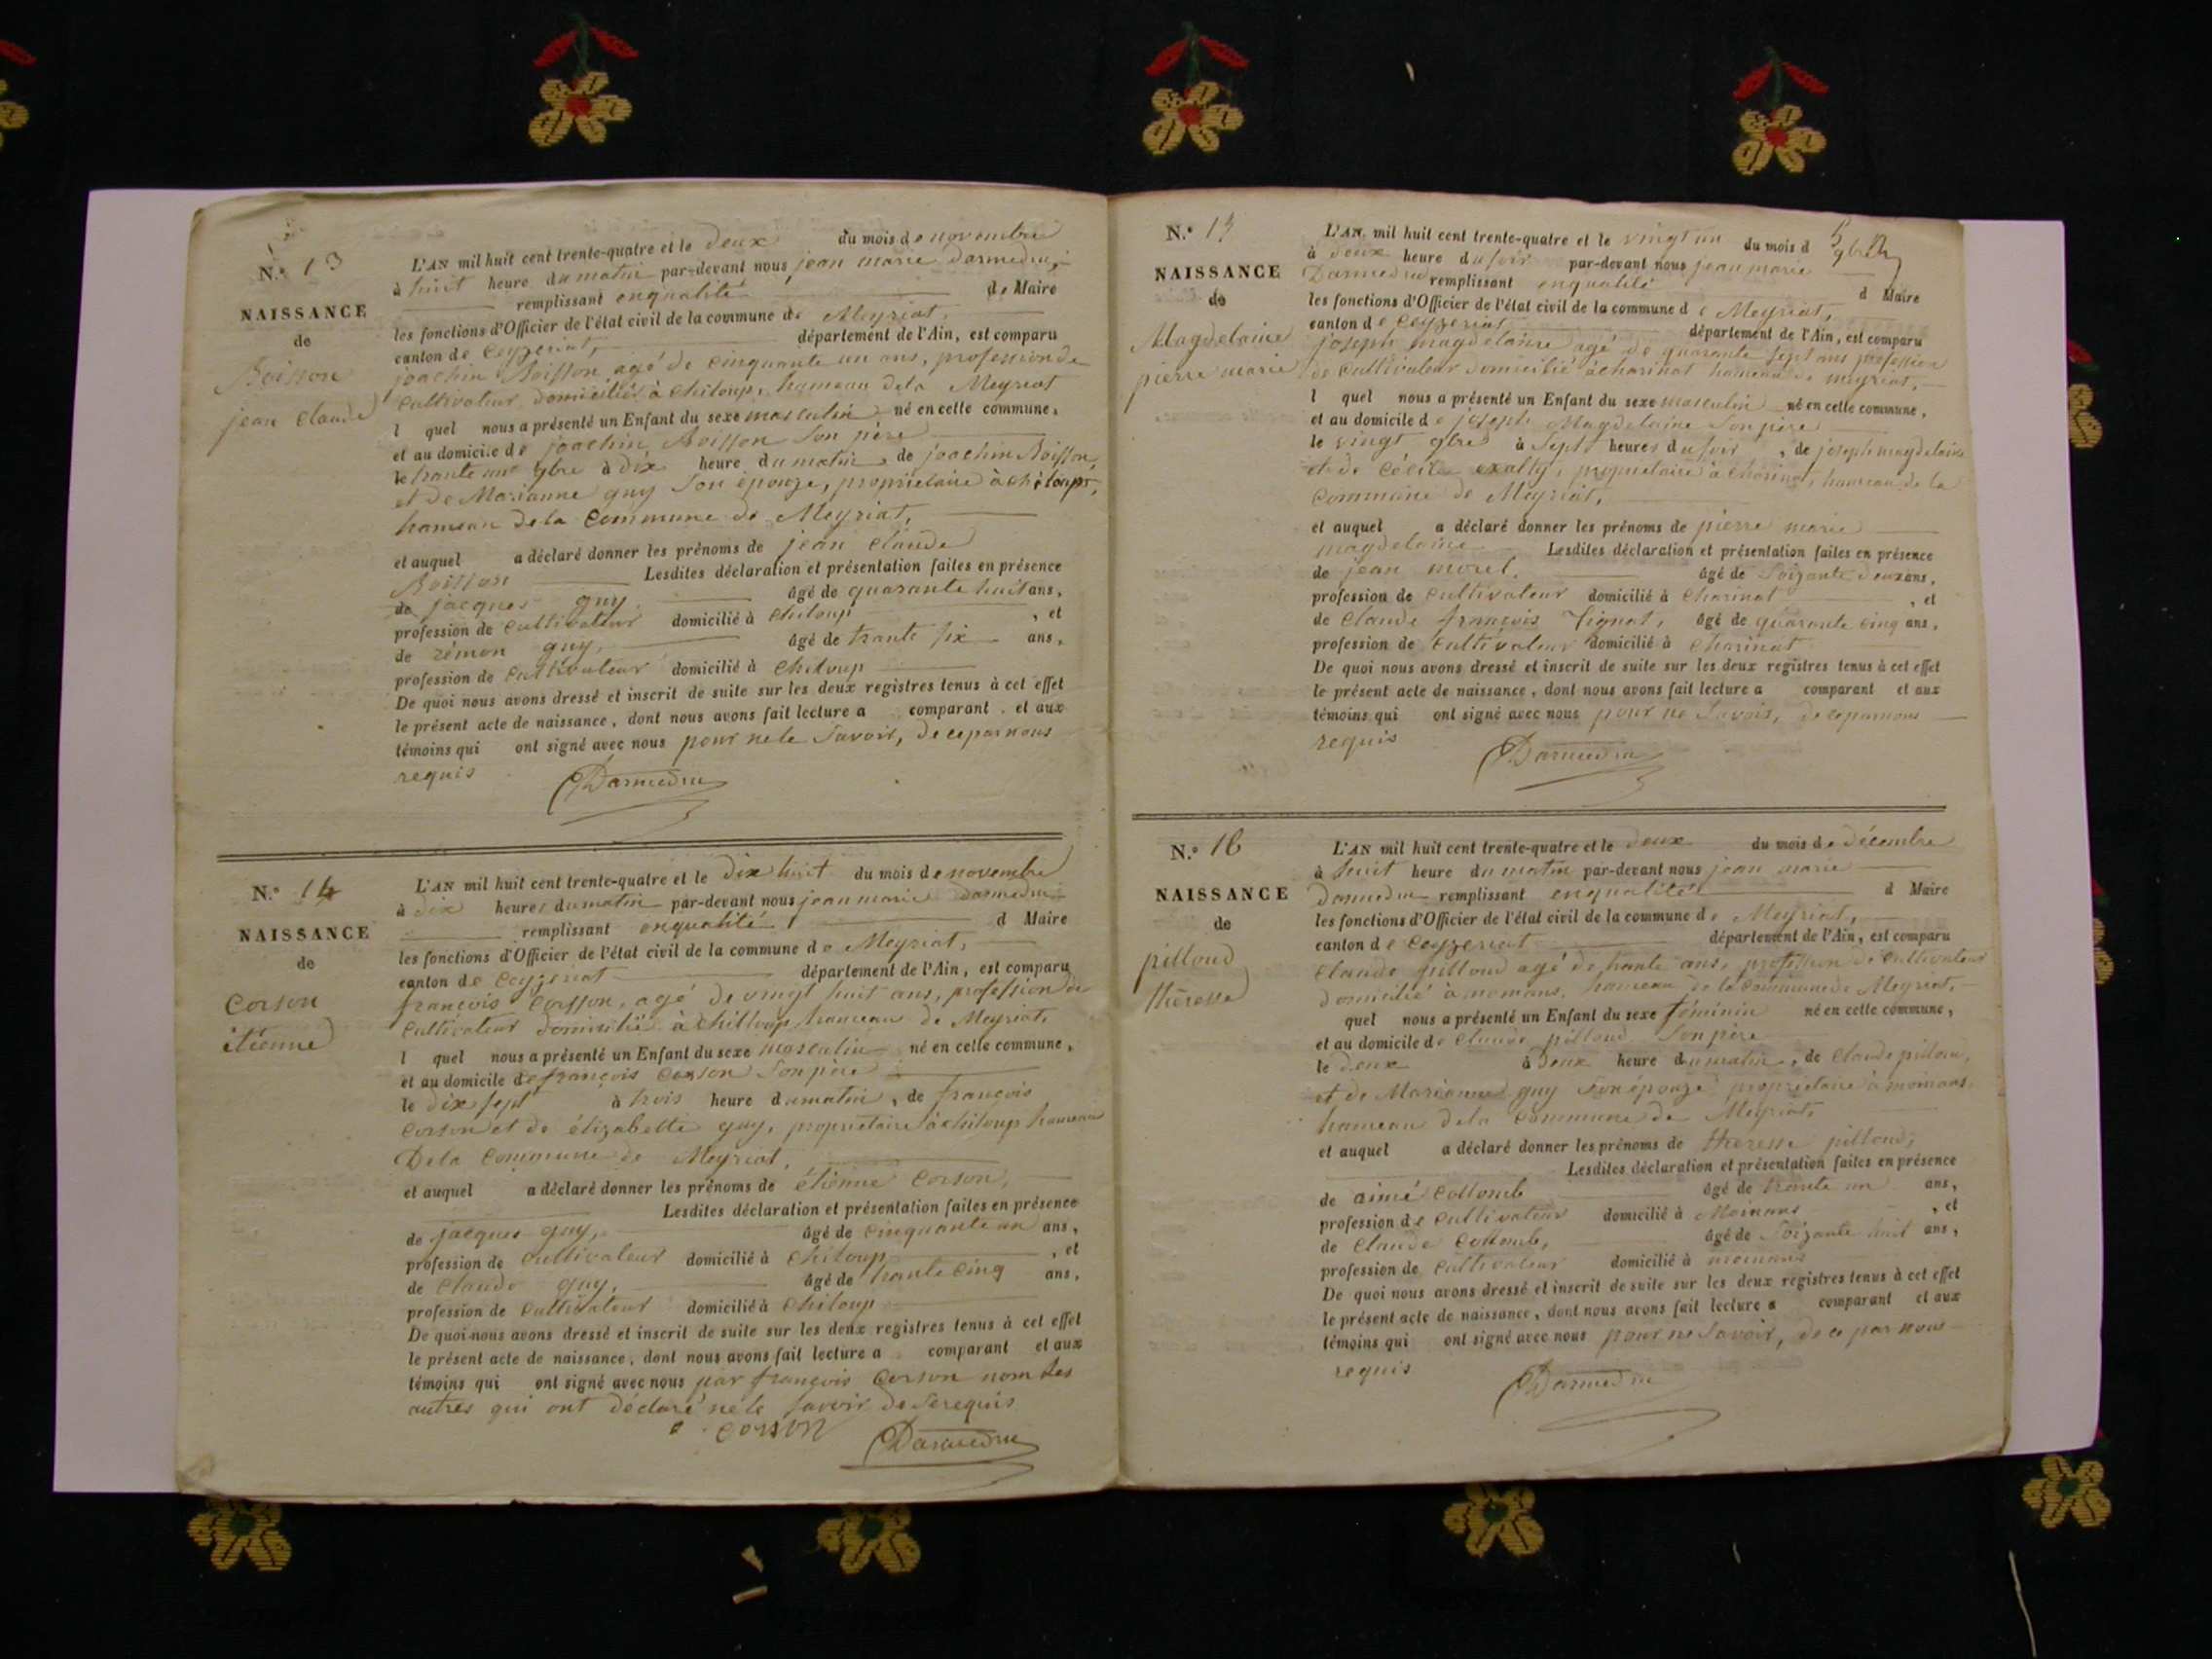 N.° 13
NAISSANCE
de
Boisson
jean Claude
L'AN mil huit cent trente-quatre et le deux du mois de novembre
à huit heure du matin par-devant nous jean marie Darmedru,
remplissant enqualité de Maire
les fonctions d'Officier de l'état civil de la commune de Meyriat,
canton de Ceyzeriat, département de l'Ain, est comparu
joachin Boisson agé de cinquante un ans, profession de
cultivateur domicilié à chiloup, hameau dela Meyriat
l quel nous a présenté un Enfant du sexe masculin né en cette commune,
et au domicile de joachin Boisson son père
le trante un à dix heure du matin, de joachin Boisson,
et de Marianne guy son épouze, propriétaire à chiloup,
hameau dela Commune de Meyriat,
et auquel a déclaré donner les prénoms de jean Claude
Boisson Lesdites déclaration et présentation faites en présence
de jacques guy âgé de quarante huit ans,
profession de cultivateur domicilié à chiloup, et
de rémon guy, âgé de trante six ans,
profession de cultivateur domicilié à chiloup
De quoi nous avons dressé et inscrit de suite sur les deux registres tenus à cet effet
le présent acte de naissance, dont nous avons fait lecture a comparant et aux
témoins qui ont signé avec nous pour ne le savoir, de ce par nous
requis
Darmedru
N.° 14
NAISSANCE
de
Corson
étienne
L'AN mil huit cent trente-quatre et le dix huit du mois de novembre
à dix heures du matin par-devant nous jean marie Darmedru
remplissant enqualité d Maire
les fonctions d'Officier de l'état civil de la commune de Meyriat,
canton de Ceyzeriat département de l'Ain, est comparu
françois Corson, agé de vingt huit ans, profession de
cultivateur domicilié à chilloup hameau de Meyriat,
l quel nous a présenté un Enfant du sexe masculin né en cette commune,
et au domicile de françois Corson son père
le dix sept à trois heure du matin, de françois
corson et de élizabette guy, propriétaire à chiloup hameau
Dela Commune de Meyriat,
et auquel a déclaré donner les prénoms de étienne Corson,
Lesdites déclaration et présentation faites en présence
de jacques guy, âgé de cinquante un ans,
profession de cultivateur domicilié à chiloup, et
de Claude guy, âgé de trante cinq ans,
profession de cultivateur domicilié à chiloup
De quoi nous avons dressé et inscrit de suite sur les deux registres tenus à cet effet
le présent acte de naissance, dont nous avons fait lecture a comparant et aux
témoins qui ont signé avec nous par françois Corson nom les
autres qui ont déclaré ne le savoir de se requis
corson
Darmedru
N.° 15
NAISSANCE
de
Magdelaine
pierre marie
L'AN mil huit cent trente-quatre et le vingt un du mois d
à deux heure du soir par-devant nous jean marie
Darmedru remplissant enqualité d Maire
les fonctions d'Officier de l'état civil de la commune de Meyriat,
canton de Ceyzeriat, département de l'Ain, est comparu
joseph magdelaine agé de quarante sept ans profession
de cultivateur domicilié à charinat hameau de meyriat,
l quel nous a présenté un Enfant du sexe masculin né en cette commune,
et au domicile de joseph Magdelaine son père
le vingt 9bre à sept heures du soir, de joseph magdelaine
et de Cécile propriétaire à charinat, hameau de la
Commune de Meyriat,
et auquel a déclaré donner les prénoms de pierre marie
magdelaine Lesdites déclaration et présentation faites en présence
de jean morel, âgé de soizante deux ans,
profession de cultivateur domicilié à charinat, et
de Claude françois âgé de quarante cinq ans,
profession de cultivateur domicilié à charinat
De quoi nous avons dressé et inscrit de suite sur les deux registres tenus à cet effet
le présent acte de naissance, dont nous avons fait lecture a comparant et aux
témoins qui ont signé avec nous pour ne savoir, de ce par nous
requis
Darmedru
N.° 16
NAISSANCE
de
pilloud
thèresse
L'AN mil huit cent trente-quatre et le deux du mois de décembre
à huit heure du matin par-devant nous jean marie
Darmedru remplissant enqualité d Maire
les fonctions d'Officier de l'état civil de la commune de Meyriat,
canton de Ceyzeriat département de l'Ain, est comparu
Claude pilloud agé de trante ans, profession de cultivateur
domicilié à momans, hameau de la commune de Meyriat,
quel nous a présenté un Enfant du sexe féminin né en cette commune,
et au domicile de Claude pilloud son père
le deux à deux heure du matin, de Claude pilloud,
et de Marianne guy son épouze propriétaire à momans
hameau dela Commune de Meyriat,
et auquel a déclaré donner les prénoms de theresse pilloud,
Lesdites déclaration et présentation faites en présence
de aimé Collomb âgé de trante un ans,
profession de cultivateur domicilié à Momans, et
de Claude Collomb, âgé de soizante huit ans,
profession de cultivateur domicilié à momans
De quoi nous avons dressé et inscrit de suite sur les deux registres tenus à cet effet
le présent acte de naissance, dont nous avons fait lecture a comparant et aux
témoins qui ont signé avec nous pour ne savoir, de ce par nous
requis
Darmedru